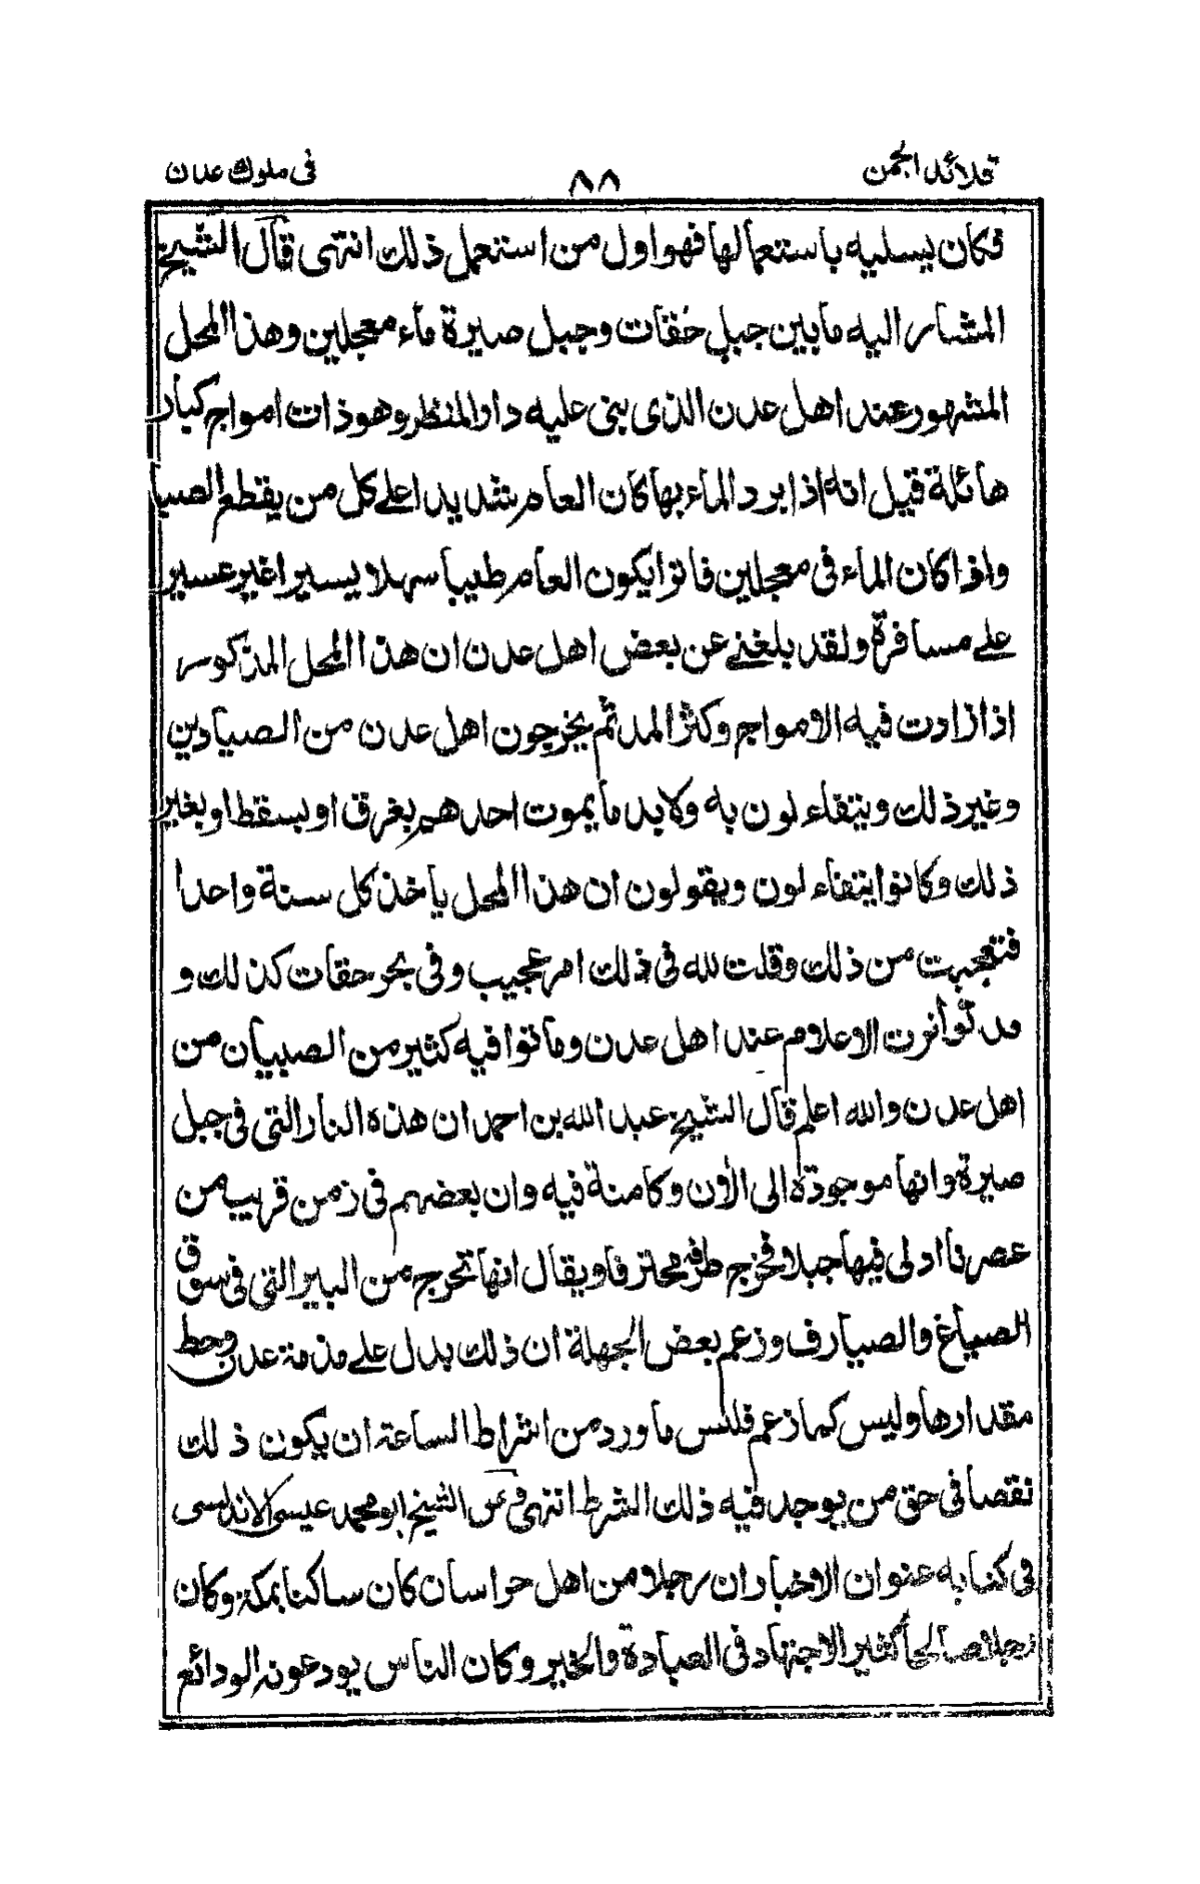 قلائد الجمن ٨٨ فى ملوك عدن
فكان يسليه باستعمالها فهو اول من استعمل ذلك انتهى قال الشيخ
المشار اليه مابين جبل حُقات وجبل صيرة ماء معجلين وهذا المحل
المشهور عند اهل عدن الذى بنى عليه دار المنظر وهو ذات امواج كبار
هائلة قيل انه اذا برد الماء بها كان العام شديدا على كل من يقطع الصيا
واذا كان الماء فى معجلين فاترا يكون العام طيبا سهلا يسيرا غير عسير
على مسافرة ولقد بلغنى عن بعض اهل عدن ان هذا المحل المذكور
اذا زادت فيه الامواج وكثر المد ثم يخرجون اهل عدن من الصيادين
وغير ذلك ويتفاء لون به ولابد ما يموت احدهم بغرق او بسقط او بغير
ذلك وكانوا يتفاء لون ويقولون ان هذا المحل يأخذ كل سنة واحدا
فتعجبت من ذلك وقلت لله فى ذلك امر عجيب وفى بحر حقات كذلك و
قد تواترت الاعلام عند اهل عدن وماتوا فيه كثير من الصبيان من
اهل عدن والله اعلم قال الشيخ عبد الله بن احمد ان هذه النار التى فى جبل
صيرة وانها موجودة الى الآن وكامنة فيه وان بعضهم فى زمن قريب من
عصرنا ادلى فيها حبلا فخرج طرفه محترقا ويقال انها تخرج من البير التى فى سوق
الصياغ والصيارف وزعم بعض الجهلة ان ذلك يدل على مذمة عدن وحط
مقدارها وليس كما زعم فليس ما ورد من اشراط الساعة ان يكون ذلك
نقصا فى حق من يوجد فيه ذلك الشرط انتهى وعن الشيخ ابو محمد عيسى الاندلسى
فى كتابه عنوان الاخبار ان رجلا من اهل خراسان كان ساكنا بمكة وكان
رجلا صالحا كثير الاجتهاد فى العبادة والخير وكان الناس يودعونه الودائع